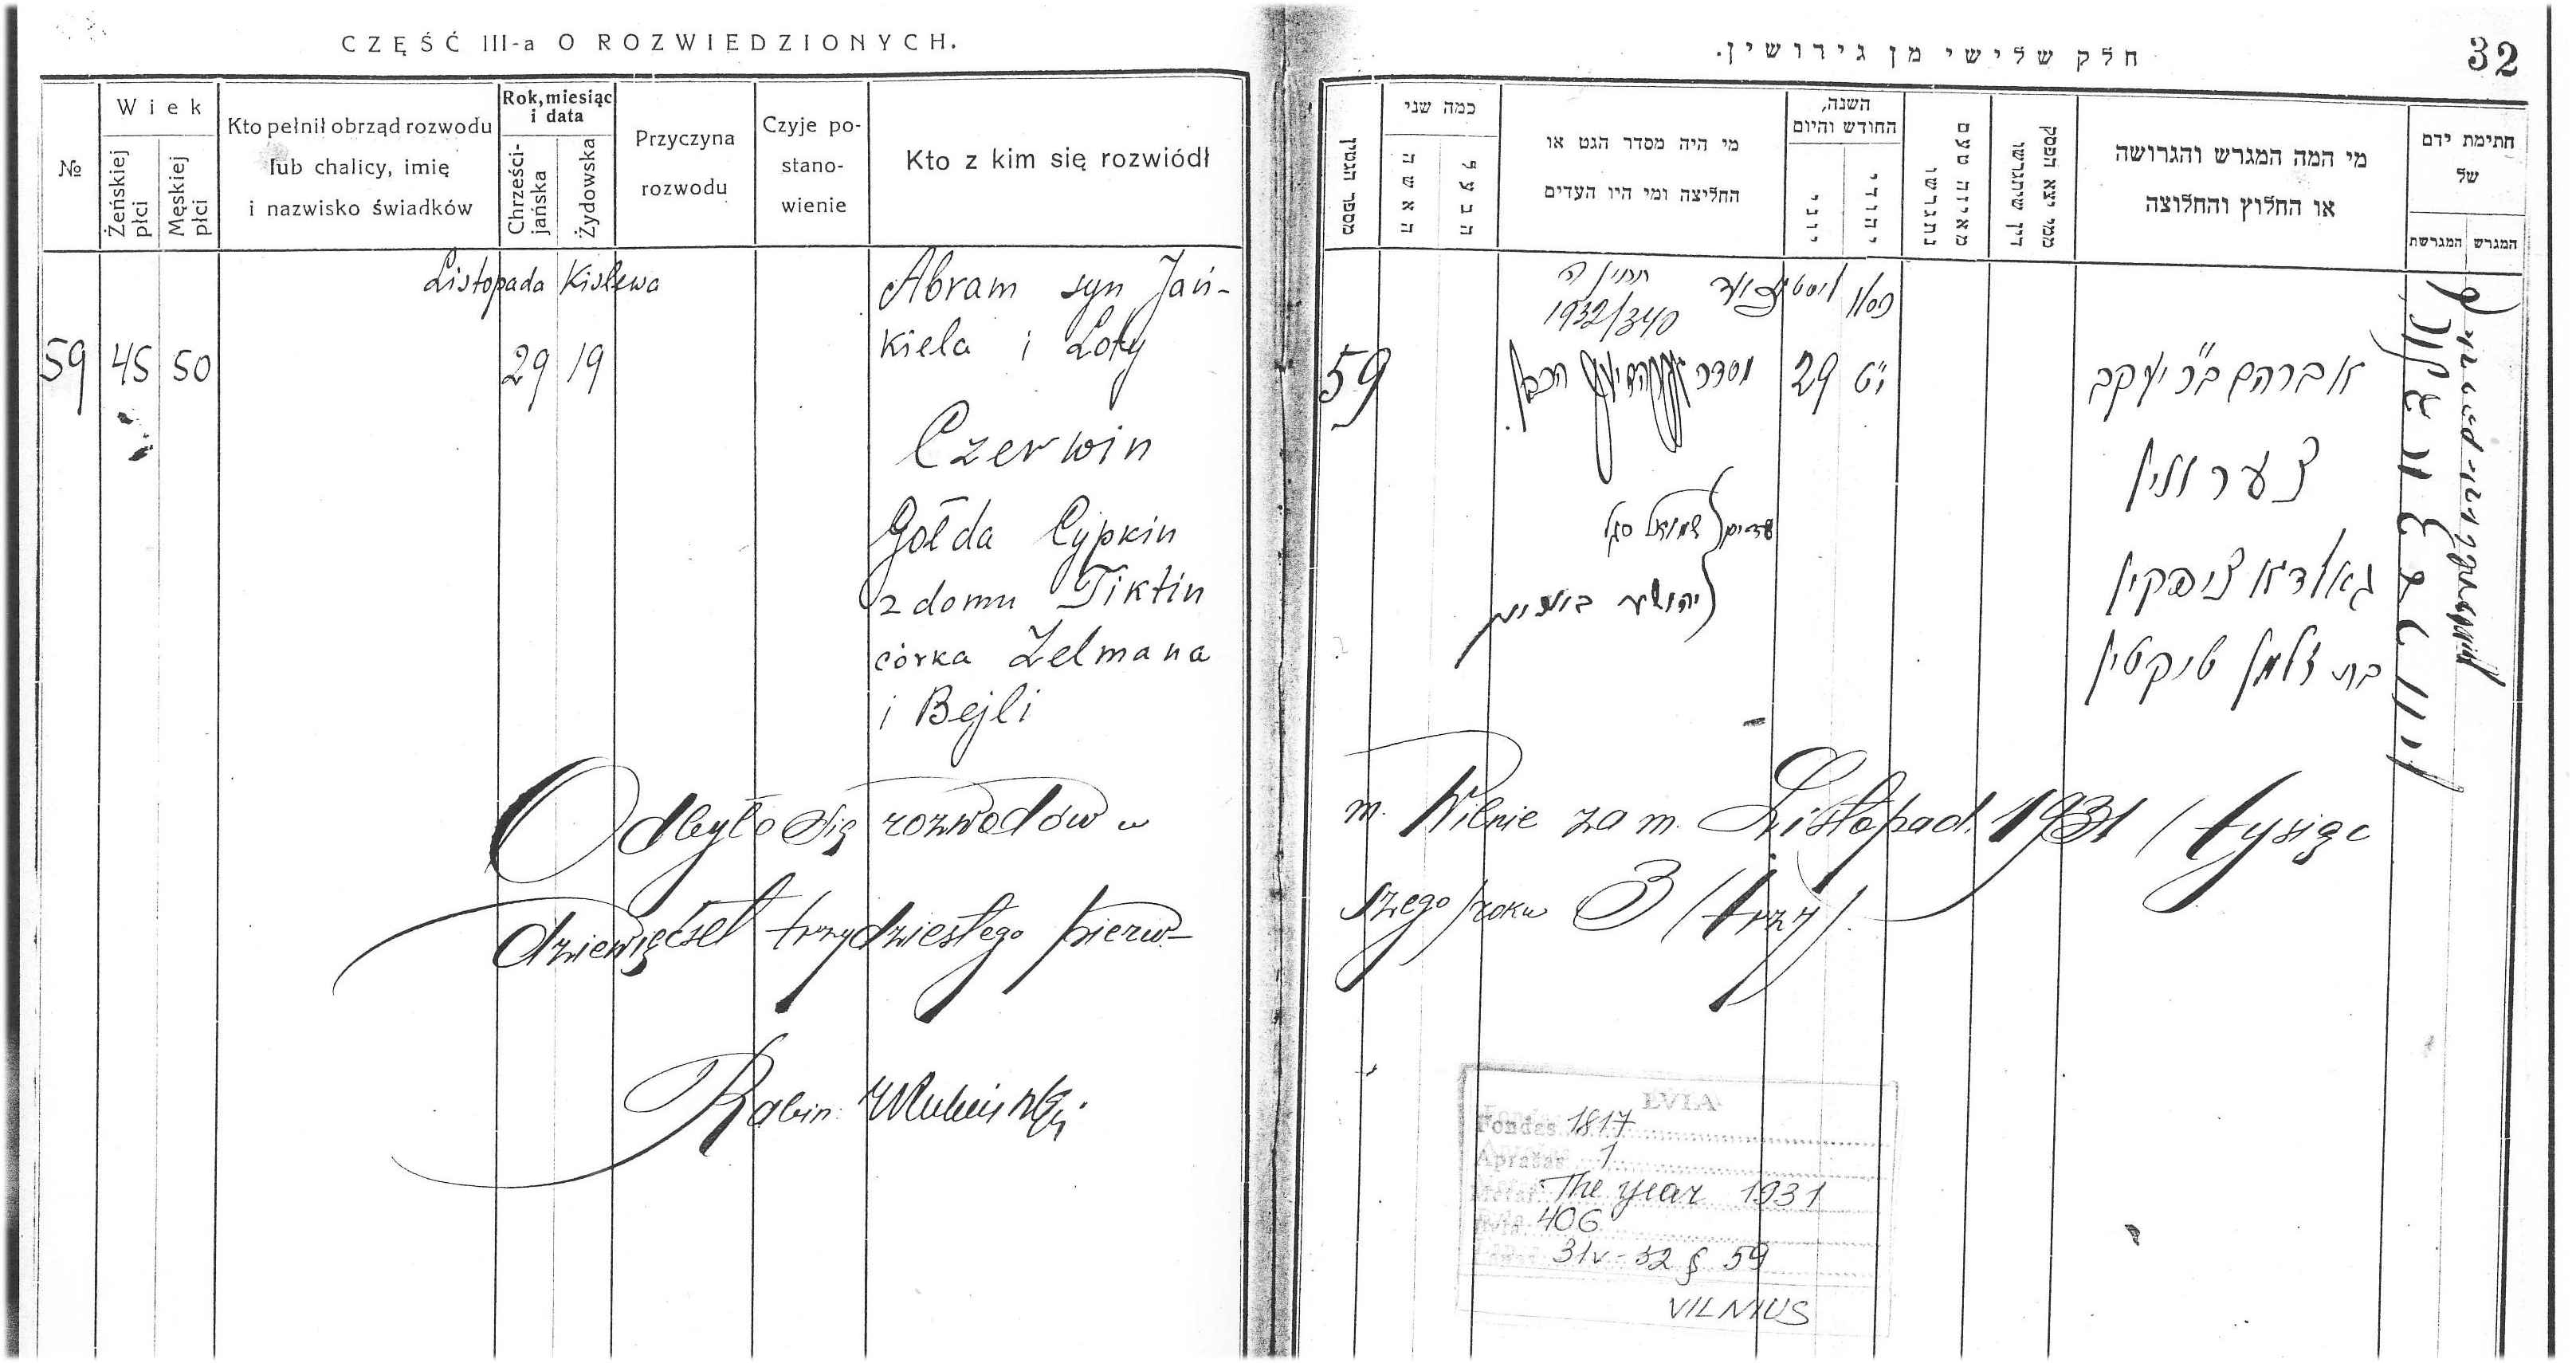 CZĘŚĆ III-a O ROZWIEDZIONYCH.
№
Wiek
Żeńskiej płci
Męskiej płci
Kto pełnił obrząd rozwodu
lub chalicy, imię
i nazwisko świadków
Rok, miesiąc
i data
Chrześci-
jańska
Żydowska
Przyczyna
rozwodu
Czyje po-
stano-
wienie
Kto z kim się rozwiódł
Listopada Kislewa
59 45 50 29 19
Abram syn Jań-
kiela i Loty
Czerwin
Gołda Cypkin
z domu Tiktin
córka Zelmana
i Bejli
חלק שלישי מן גירושין.
32
מספר הגטין
כמה שני
האשה
הבעל
מי היה מסדר הגט או
החליצה ומי היו העדים
השנה,
החודש והיום
יוני
יהודי
מאיזה טעם
נתגרשו
ממי יצא הפסק
דין שיתגרשו
מי המה המגרש והגרושה
או החלוץ והחלוצה
חתימת ידם
של
המגרש
המגרשת
1932/340
59
מסדר
29
י"ט
עדים
שמואל סגל
יהושע
אברהם ב"ר יעקב
צערווין
גאלדא ציפקין
בת זלמן טיקטין
Odbyło się rozwodów w m. Wilnie za m. Listopad. 1931 / tysiąc
dziewięćset trzydziestego pierw-szego / roku 3 / trzy /.
Rabin
LVIA
Fondas 1817
Aprašas 1
The year 1931
406
31v-32 § 59
VILNIUS